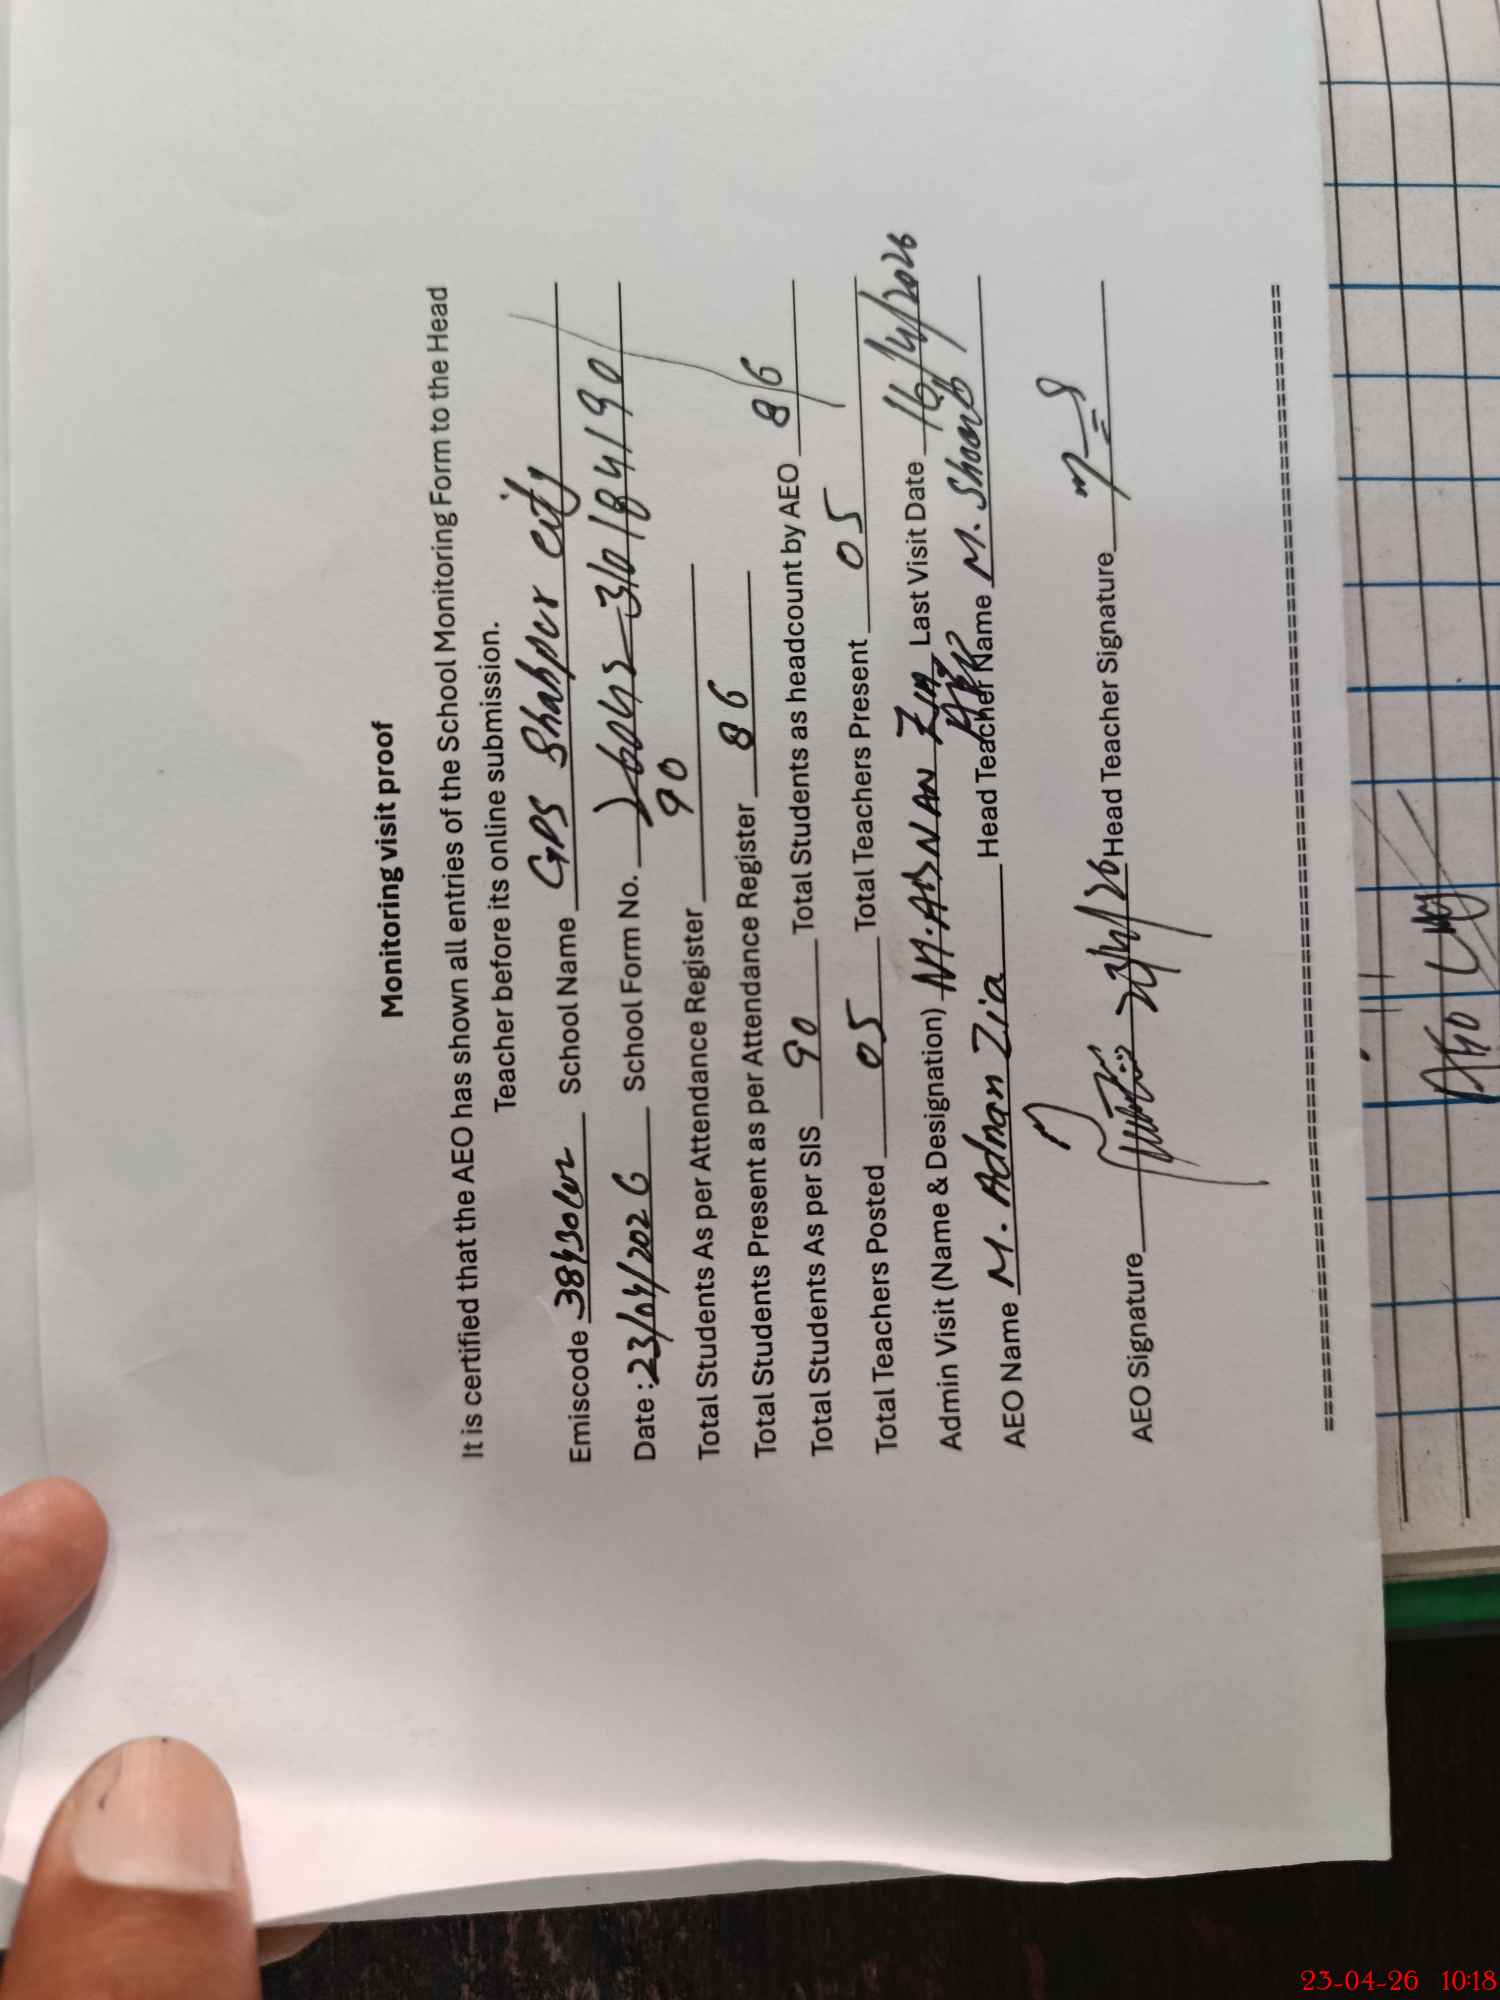 Monitoring visit proof
It is certified that the AEO has shown all entries of the School Monitoring Form to the Head
Teacher before its online submission.
Emiscode School Name GPS Shahpur city
Date : 23/04/2026 School Form No.
Total Students As per Attendance Register 90
Total Students Present as per Attendance Register 86
Total Students As per SIS 90 Total Students as headcount by AEO 86
Total Teachers Posted 05 Total Teachers Present 05
Admin Visit (Name & Designation) M. ADNAN ZIA Last Visit Date 16/4/2026
AEO Name M. Adnan Zia Head Teacher Name M. Shoaib
AEO Signature 23/4/26 Head Teacher Signature
==========
AEO
23-04-26 10:18